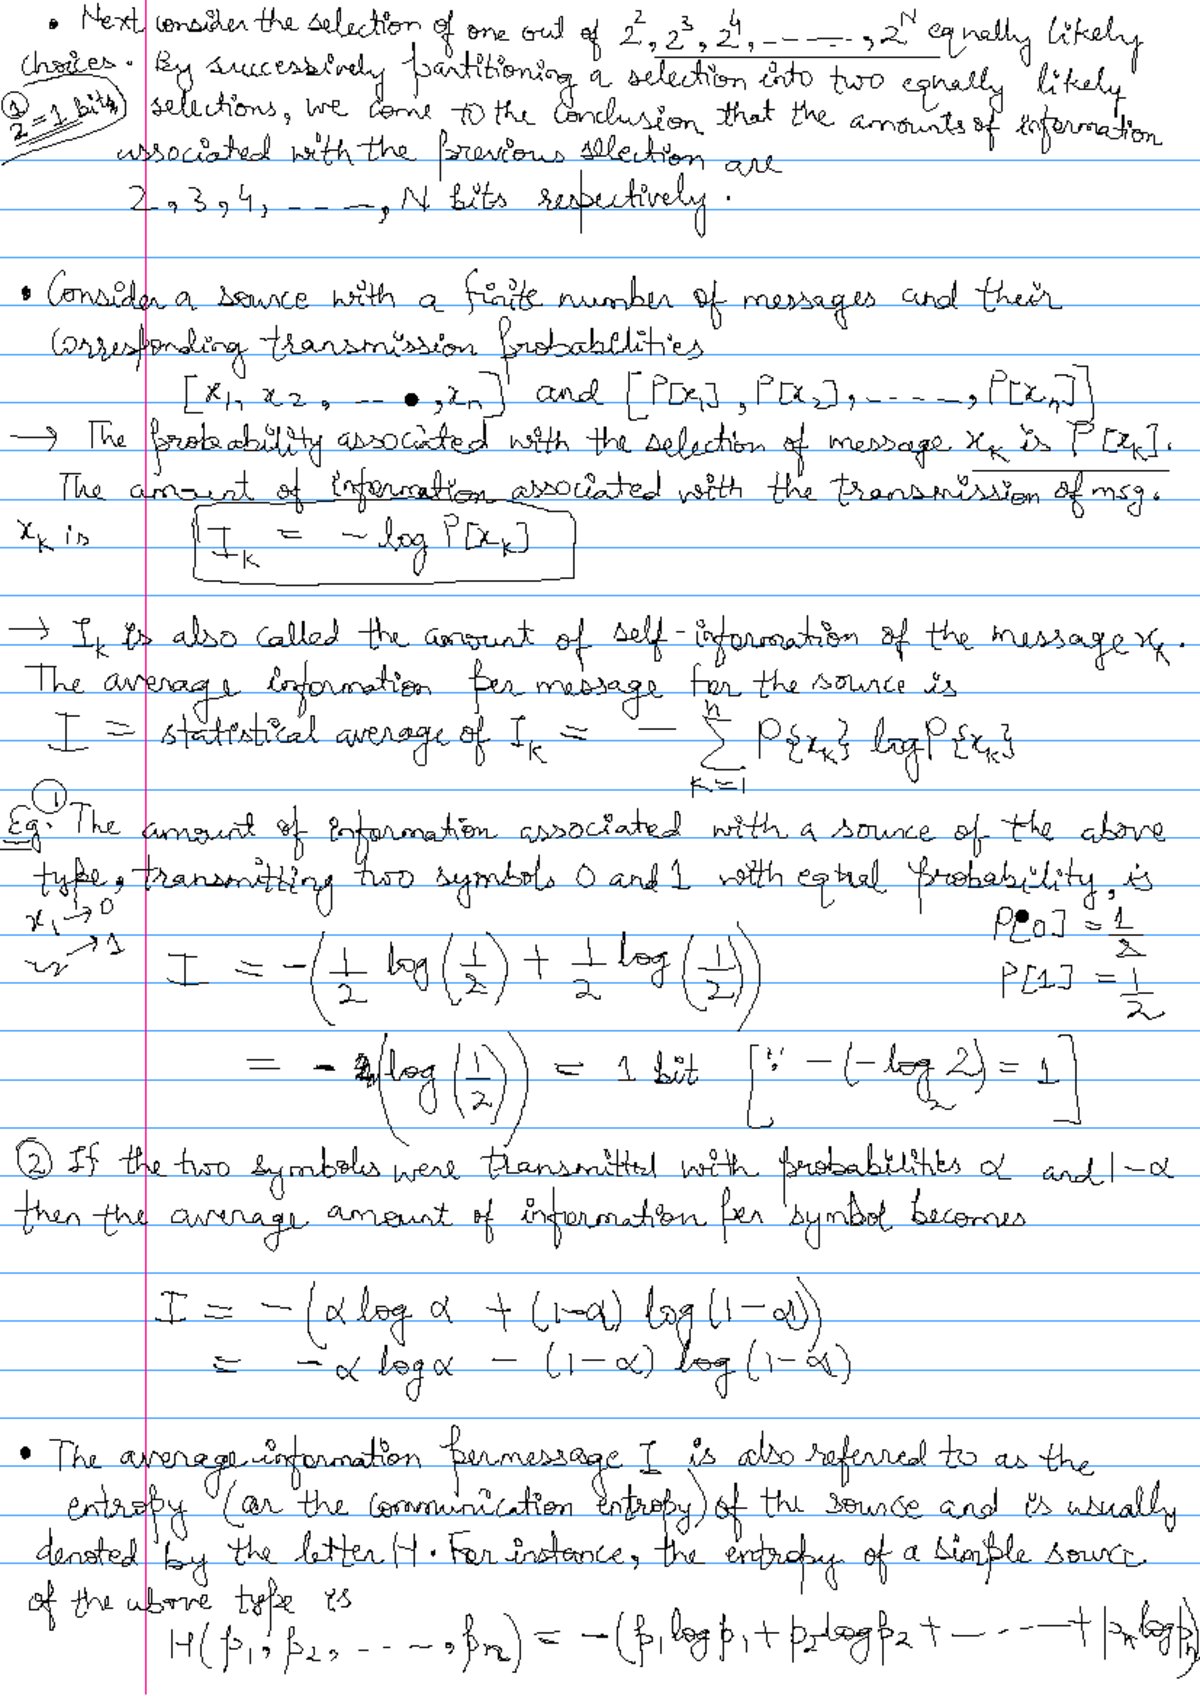 • Next consider the selection of one out of 2², 2³, 2⁴, ------, 2ᴺ equally likely
choices. By successively partitioning a selection into two equally likely
2¹ = 1 bits selections, we come to the conclusion that the amounts of information
associated with the previous selection are
2, 3, 4, ----, N bits respectively.
• Consider a source with a finite number of messages and their
corresponding transmission probabilities
[x₁, x₂, ---, xₙ] and [P[x₁], P[x₂], -----, P[xₙ]]
→ The probability associated with the selection of message xₖ is P[xₖ].
The amount of information associated with the transmission of msg.
xₖ is Iₖ = - log P[xₖ]
→ Iₖ is also called the amount of self-information of the message xₖ.
The average information per message for the source is
I = statistical average of Iₖ = - ∑ₖ₌₁ⁿ P{xₖ} log P{xₖ}
Eg. ① The amount of information associated with a source of the above
type, transmitting two symbols 0 and 1 with equal probability, is
x₁ → 0
x₂ → 1
P[0] = 1/2
P[1] = 1/2
I = -(1/2 log(1/2) + 1/2 log(1/2))
= - (log(1/2)) = 1 bit [∵ -(-log₂2) = 1]
② If the two symbols were transmitted with probabilities α and 1-α
then the average amount of information per symbol becomes
I = -(α log α + (1-α) log(1-α))
= -α log α - (1-α) log(1-α)
• The average information per message I is also referred to as the
entropy (or the communication entropy) of the source and is usually
denoted by the letter H. For instance, the entropy of a simple source
of the above type is
H(p₁, p₂, -----, pₙ) = -(p₁ log p₁ + p₂ log p₂ + ------ + pₙ log pₙ)